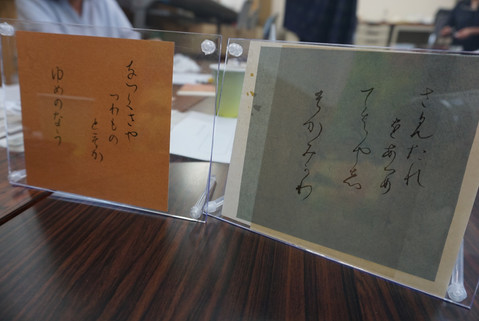 なつくさや
つわもの
ともが
ゆめのなう
さみだれ
をあつめ
てはやし
もがみがわ